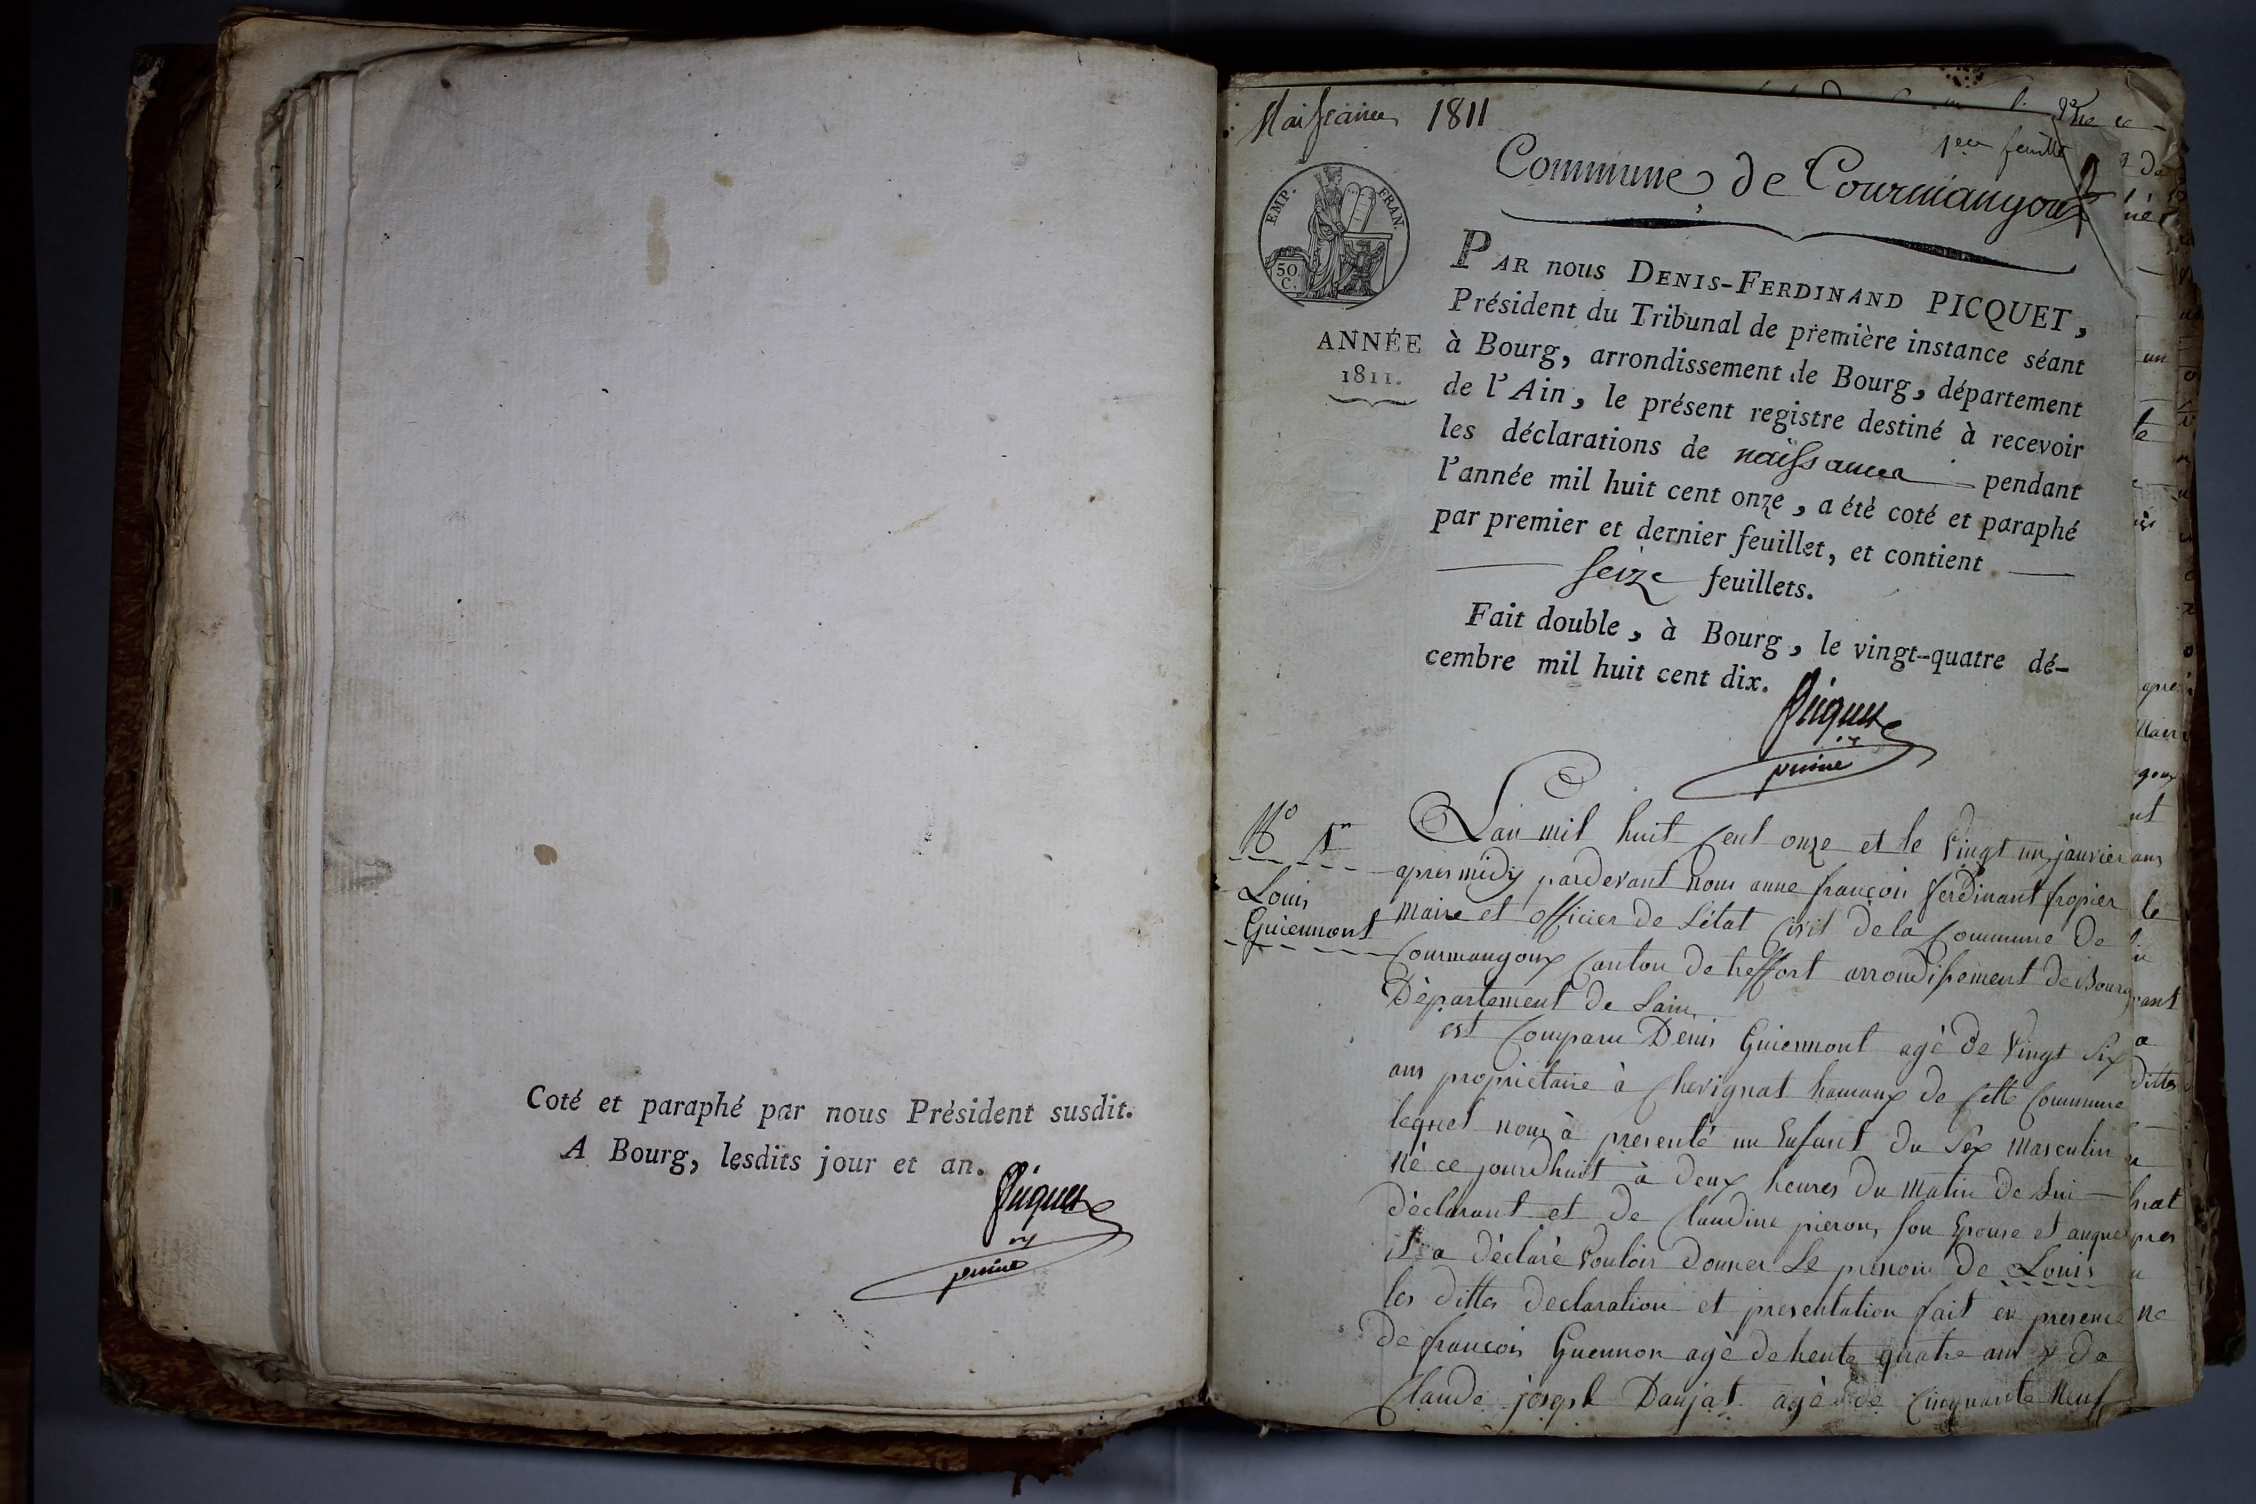 Coté et paraphé par nous Président susdit.
A Bourg, lesdits jour et an.
Picquet
Naissances 1811
1ere feuille
Commune de Courmangoux
EMP. FRAN.
50 C.
ANNÉE
1811.
PAR nous DENIS-FERDINAND PICQUET,
Président du Tribunal de première instance séant
à Bourg, arrondissement de Bourg, département
de l'Ain, le présent registre destiné à recevoir
les déclarations de naissances pendant
l'année mil huit cent onze, a été coté et paraphé
par premier et dernier feuillet, et contient
seize feuillets.
Fait double, à Bourg, le vingt-quatre dé-
cembre mil huit cent dix.
Picquet
No 1er
Louis
Guiennont
L'an mil huit cent onze et le vingt un janvier
apres midy pardevant nous anne françois ferdinant
Maire et officier de l'état Civil de la Commune De
Courmangoux Canton de treffort arrondissement de Bourg
Département de Lain
est Comparu Denis Guiennont agé de vingt six
ans proprietaire à Chevignat hamaux de Cette Commune
lequel nous à presenté un Enfant du Sex Masculin
Né ce jourdhuit à deux heures du Matin De Lui
déclarant et de Claudine pieron son Epouse et auquel
il a déclaré vouloir donner Le prenom De Louis
les dittes declaration et presentation fait en presence
De françois Guennon agé de trente quatre ans & de
Claude joseph Daujat agé de Cinquante Neuf